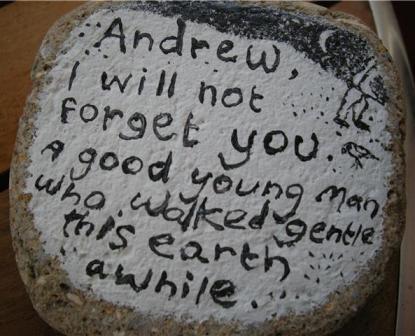 Andrew,
I will not
forget you.
A good young man
who walked gentle
this earth
awhile.